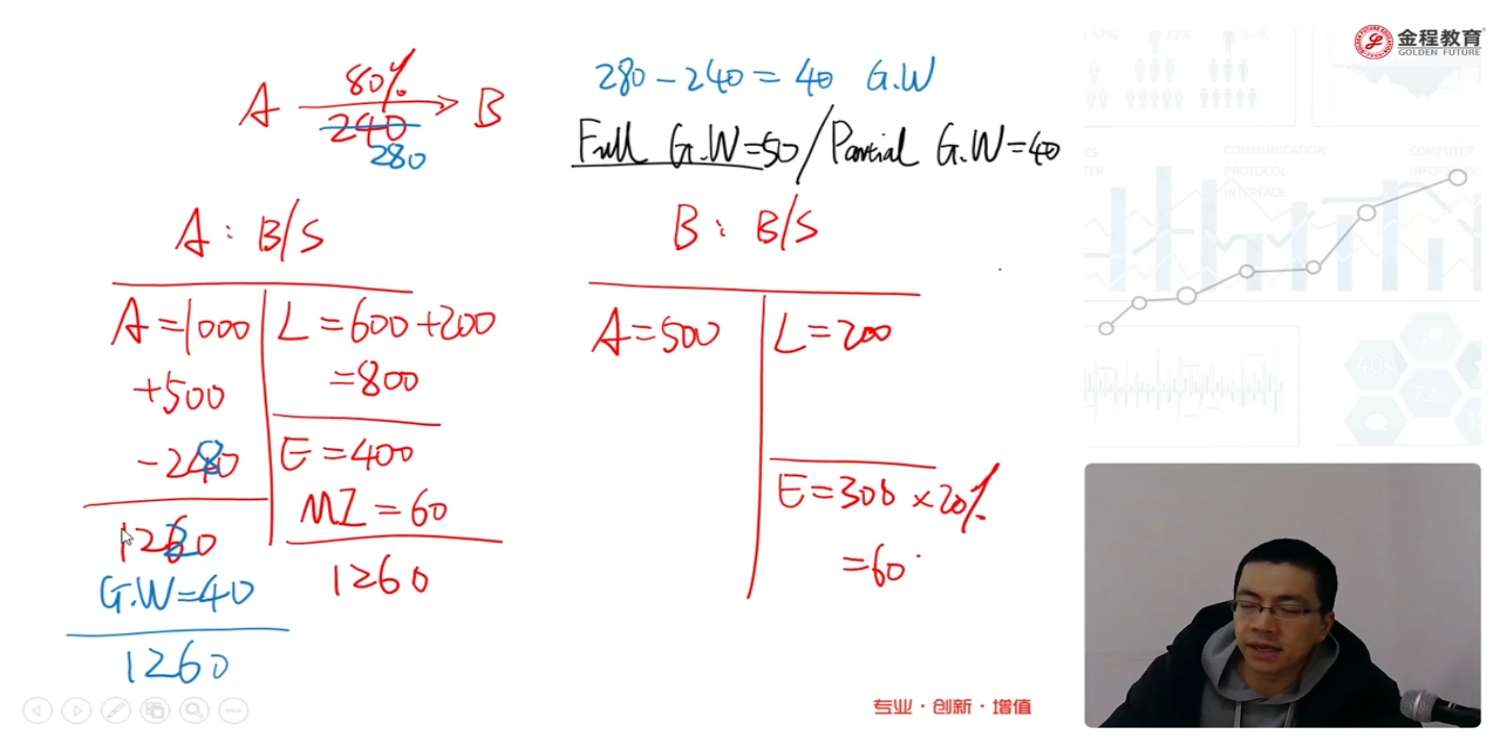 金程教育
GOLDEN FUTURE
A 80% B
240
280
280-240=40 G.W
Full G.W=50/Partial G.W=40
A: B/S
A=1000
+500
-280
1220
G.W=40
1260
L=600+200
=800
E=400
MI=60
1260
B: B/S
A=500
L=200
E=300×20%
=60
COMMUNICATION
PROTOCOL
INTERFACE
COMPUTER
专业·创新·增值